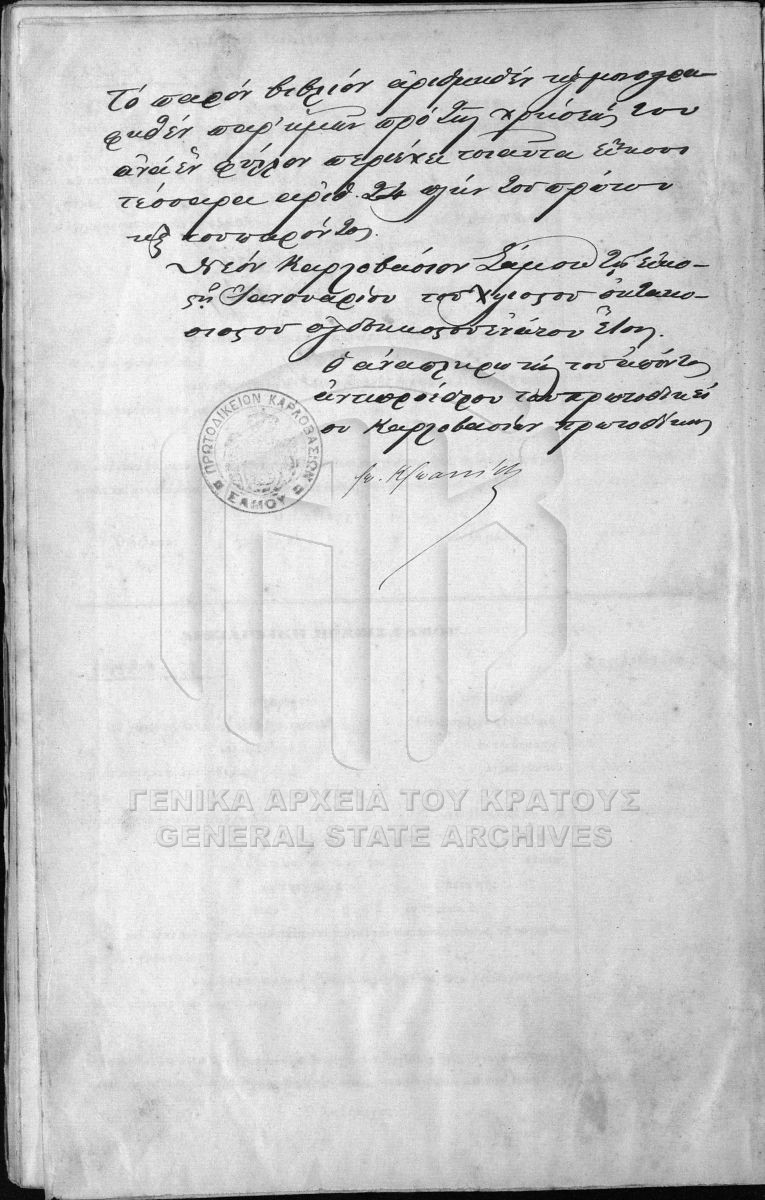 Τό παρόν βιβλίον ἀριθμηθέν καί μονογρα-
φηθέν παρ' ἡμῶν πρό τῆς χρήσεώς του
ἀνά ἓν φύλλον περιέχει τοιαῦτα εἴκοσι
τέσσαρα ἀριθ. 24 πλήν τοῦ πρώτου
καί τοῦ παρόντος.
Νέον Καρλοβάσιον Σάμου τῇ εἰκο-
στῇ Ἰανουαρίου τοῦ χιλιοστοῦ ὀκτακο-
σιοστοῦ ὀγδοηκοστοῦ ἐνάτου ἔτους.
Ὁ ἀναπληρωτής τοῦ ἀπόντος
ἀντιπροέδρου τοῦ πρωτοδικεί
ου Καρλοβασίων πρωτοδίκης
ΠΡΩΤΟΔΙΚΕΙΟΝ ΚΑΡΛΟΒΑΣΙΩΝ
ΣΑΜΟΥ
ΓΕΝΙΚΑ ΑΡΧΕΙΑ ΤΟΥ ΚΡΑΤΟΥΣ
GENERAL STATE ARCHIVES